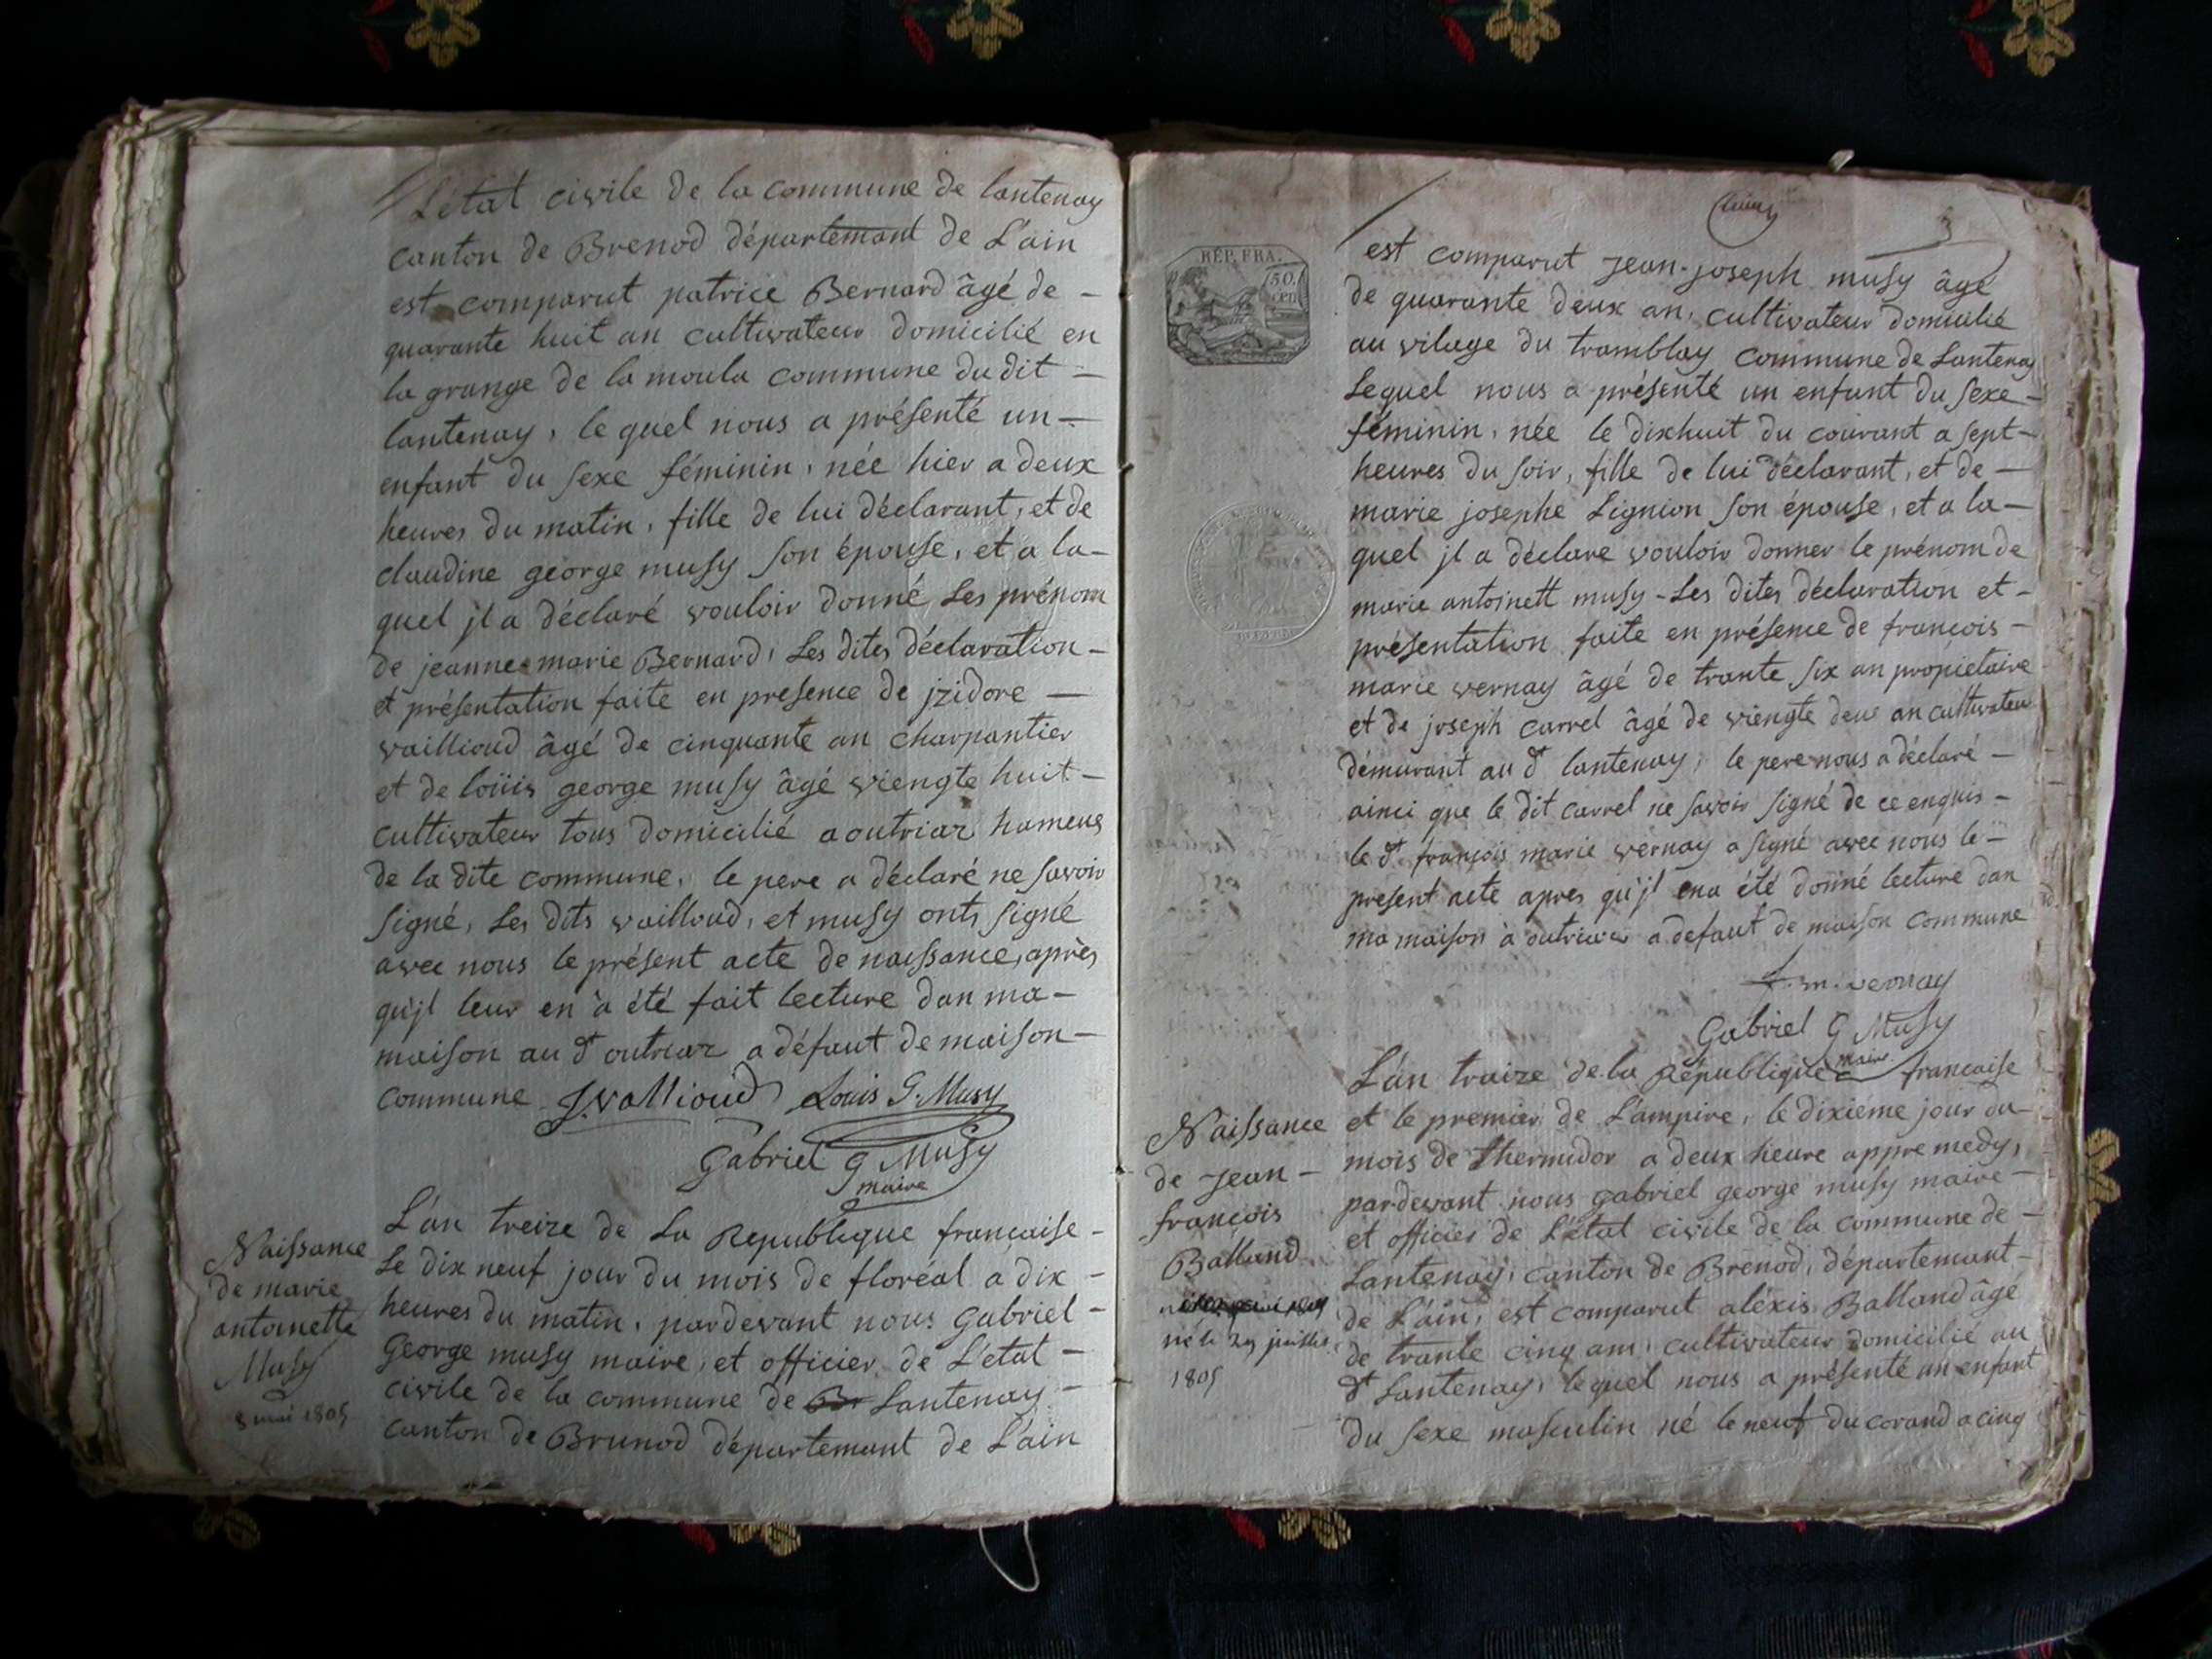 L'état civile de la commune de lantenay
canton de Brenod départemant de L'ain
est comparut patrice Bernard âgé de -
quarante huit an cultivateur domicilié en
la grange de la moula commune du dit -
lantenay, le quel nous a présenté un -
enfant du sexe féminin, née hier a deux
heures du matin, fille de lui déclarant, et de
claudine george musy son épouse, et a la-
quel jl a déclaré vouloir donné Les prénom
de jeanne marie Bernard, Les dites déclaration -
et présentation faite en presence de jzidore -
vaillioud âgé de cinquante an charpantier
et de loüis george musy âgé viengte huit -
cultivateur tous domicilié a outriaz hameus
de la dite commune, le pere a déclaré ne savoir
signé, Les dits vailloud, et musy onts signé
avec nous le présent acte de naissance, après
qu'jl leur en a été fait lecture dan ma -
maison au dt outriaz a défaut de maison -
commune J. vallioud Louis G. Musy
Gabriel g Musy
maire
Naissance
de marie
antoinette
Musy
8 mai 1805
L'an treize de La Republique francaise -
Le dix neuf jour du mois de floréal a dix -
heures du matin, pardevant nous Gabriel -
George musy maire, et officier de L'etat -
civile de la commune de Br Lantenay -
canton de Brunod départemant de L'ain
3
RÉP. FRA.
50.
CEN
est comparut Jean-joseph musy âgé
de quarante deux an, cultivateur domicilié
au vilage du tramblay commune de Lantenay
Lequel nous a présenté un enfant du sexe -
féminin, née le dixhuit du courant a sept -
heures du soir, fille de lui déclarant, et de -
marie josephe Lignion son épouse, et a la -
quel jl a déclare vouloir donner le prénom de
marie antoinett musy - Les dites déclaration et -
présentation faite en présence de francois -
marie vernay âgé de trante six an propietaire
et de joseph carrel âgé de viengte deus an cultivateur
démurant au dt lantenay, le pere nous a déclaré -
ainci que le dit carrel ne savoir signé de ce enquis -
le dt françois marie vernay a signé avec nous le -
présent acte apres qu'jl ena été donné lecture dan
ma maison a outriaz a defaut de maison commune
f. m. vernay
Gabriel G Musy
maire
Naissance
de Jean -
françois
Balland
né le 29 juillet
1805
L'an traize de la République francaise
et le premier de L'ampire, le dixieme jour du -
mois de thermidor a deux heure appre medy,
pardevant nous gabriel george musy maire -
et officier de L'état civile de la commune de -
Lantenay, canton de Brénod, départemant -
de L'ain, est comparut aléxis Balland âgé
de trante cinq am, cultivateur domicilié au
dt Lantenay, lequel nous a présenté un enfant
du sexe masculin né le neuf du corand a cinq